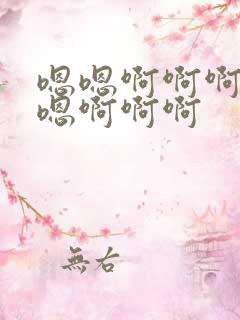 嗯嗯啊啊啊
嗯啊啊啊
無右